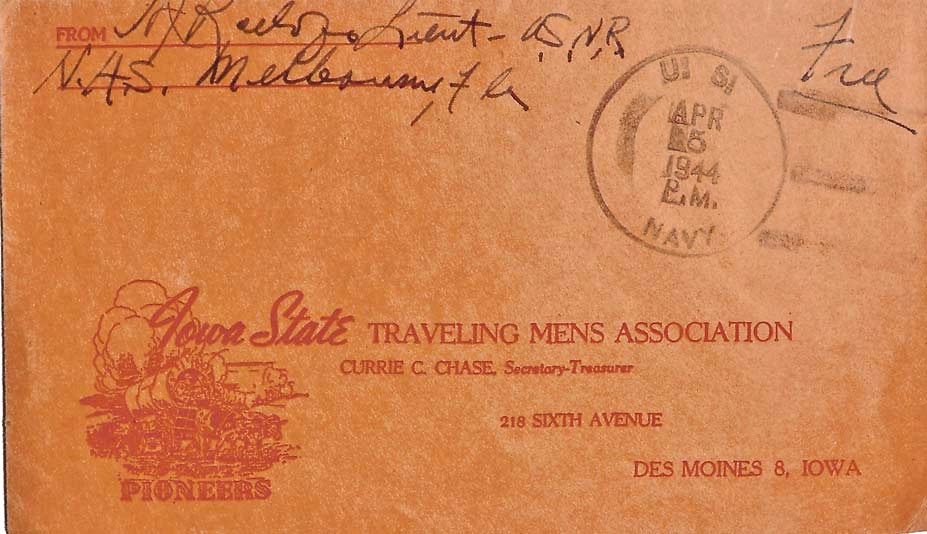 FROM Lieut - USNR
N.A.S. Melbourne, Fla
Free
U. S.
APR
5
1944
P.M.
NAVY
Iowa State TRAVELING MENS ASSOCIATION
CURRIE C. CHASE, Secretary-Treasurer
218 SIXTH AVENUE
DES MOINES 8, IOWA
PIONEERS